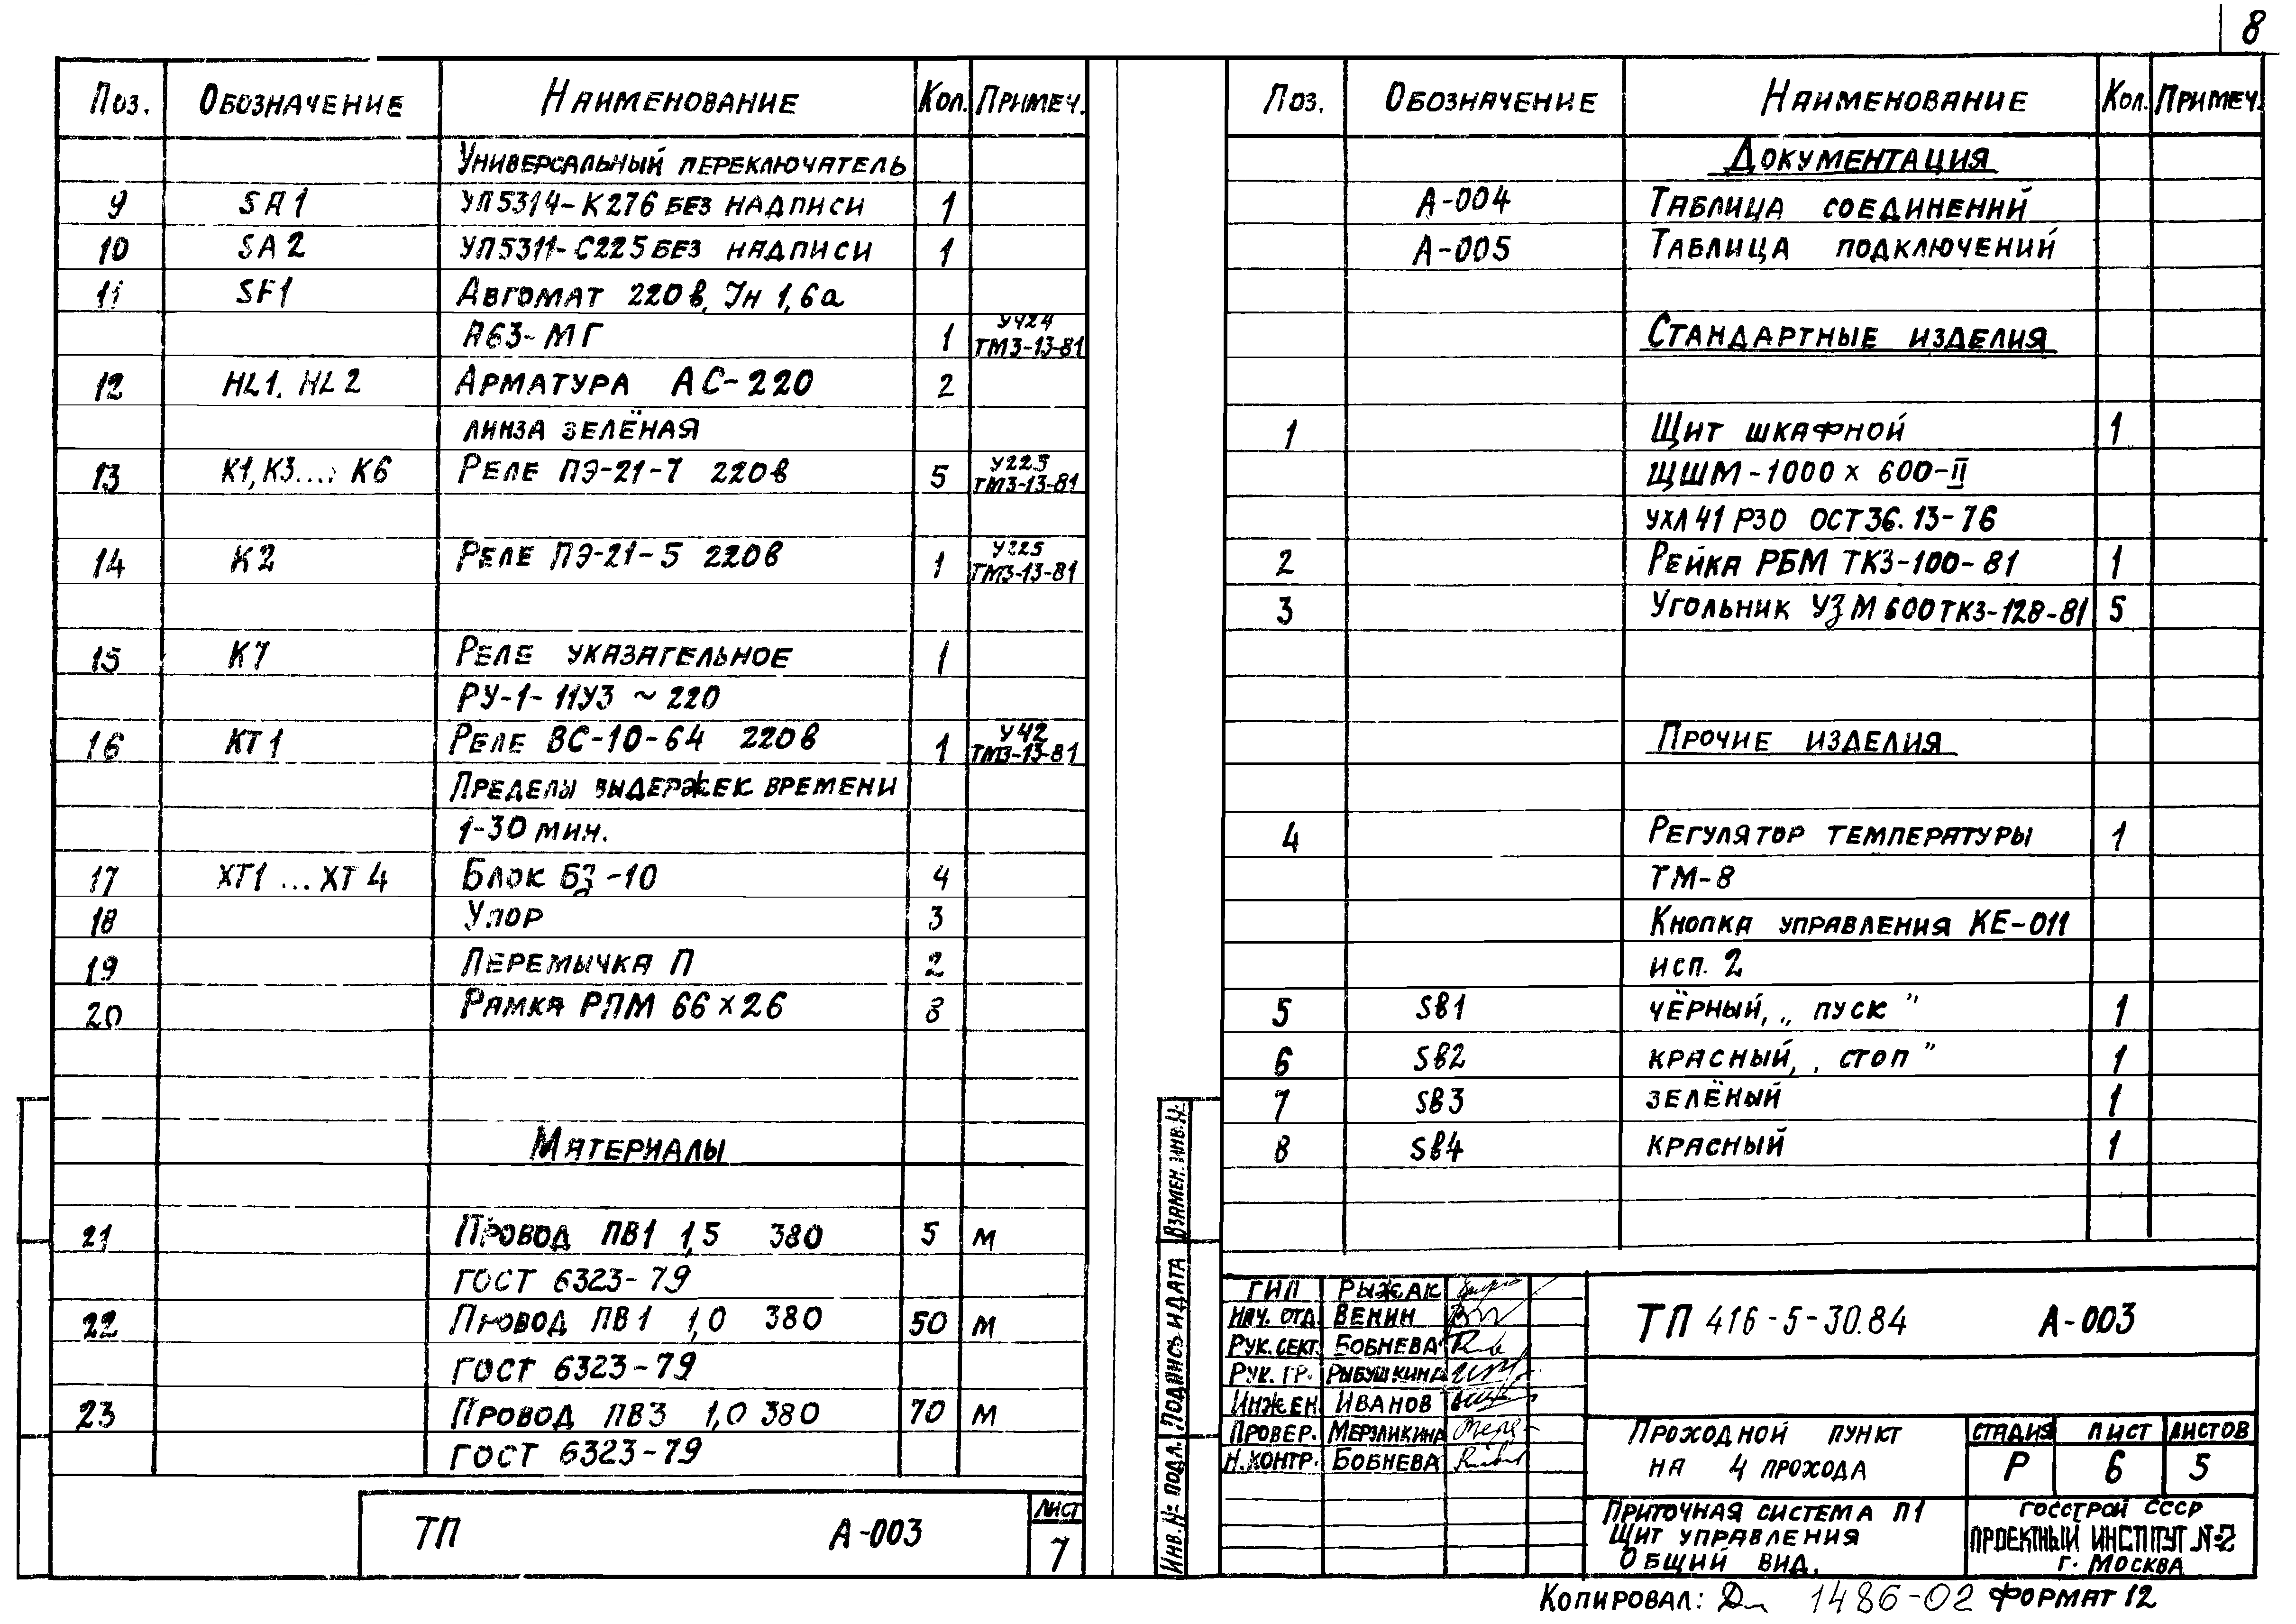 8
Поз. Обозначение Наименование Кол. Примеч.
Универсальный переключатель
9 SA1 УП5314-К276 без надписи 1
10 SA2 УП5311-С225 без надписи 1
11 SF1 Автомат 220в, Iн 1,6а
А63-МГ 1 У424 ТМ3-13-81
12 HL1, HL2 Арматура АС-220 2
линза зелёная
13 К1, К3...; К6 Реле ПЭ-21-7 220в 5 У223 ТМ3-13-81
14 К2 Реле ПЭ-21-5 220в 1 У225 ТМ3-13-81
15 К7 Реле указательное 1
РУ-1-11У3 ~ 220
16 КТ1 Реле ВС-10-64 220в 1 У42 ТМ3-13-81
Пределы выдержек времени
1-30 мин.
17 ХТ1 ... ХТ4 Блок БЗ-10 4
18 Упор 3
19 Перемычка П 2
20 Рамка РПМ 66×26 8
Материалы
21 Провод ПВ1 1,5 380 5 м
ГОСТ 6323-79
22 Провод ПВ1 1,0 380 50 м
ГОСТ 6323-79
23 Провод ПВ3 1,0 380 70 м
ГОСТ 6323-79
ТП А-003
Лист
7
Поз. Обозначение Наименование Кол. Примеч.
Документация
А-004 Таблица соединений
А-005 Таблица подключений
Стандартные изделия
1 Щит шкафной 1
ЩШМ-1000×600-II
УХЛ41 Р30 ОСТ36.13-76
2 Рейка РБМ ТК3-100-81 1
3 Угольник УЗМ600ТК3-128-81 5
Прочие изделия
4 Регулятор температуры 1
ТМ-8
Кнопка управления КЕ-011
исп. 2
5 SВ1 чёрный, „ пуск " 1
6 SВ2 красный, „ стоп " 1
7 SВ3 зелёный 1
8 SВ4 красный 1
Взамен. инв. №
Подпись и дата
Инв. № подл.
ГИП Рыжак
Нач. отд. Венин
Рук. сект. Бобнева
Рук. гр. Рыбушкина
Инжен. Иванов
Провер. Мерзликина
Н. контр. Бобнева
ТП 416-5-30.84 А-003
Проходной пункт
на 4 прохода
Стадия Лист Листов
Р 6 5
Приточная система П1
Щит управления
Общий вид.
Госстрой СССР
Проектный институт №2
г. Москва
Копировал: 1486-02 Формат 12